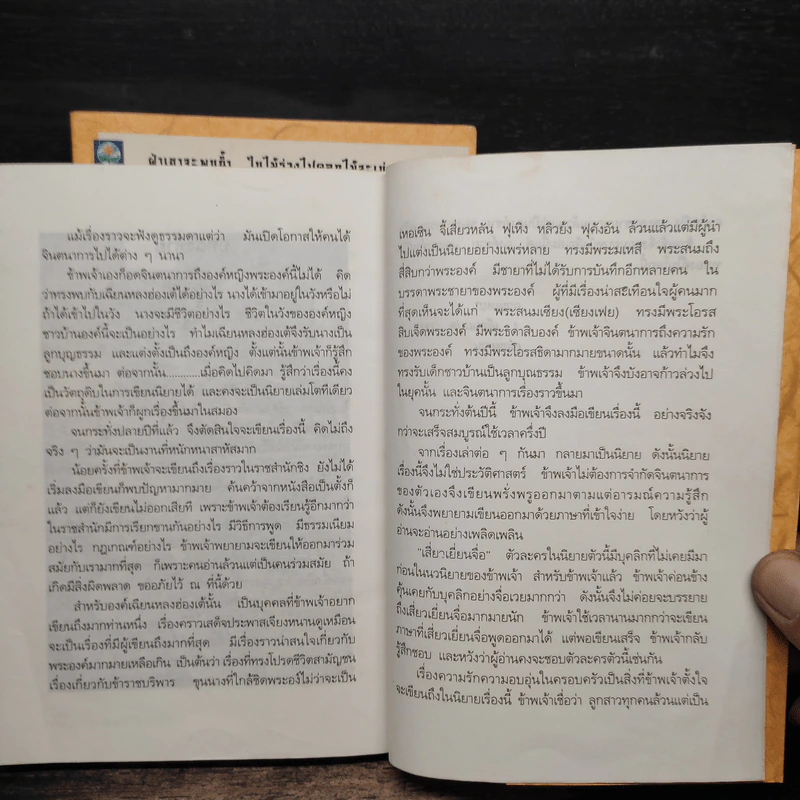 แม้เรื่องราวจะฟังดูธรรมดาแต่ว่า มันเปิดโอกาสให้คนได้
จินตนาการไปได้ต่าง ๆ นานา
ข้าพเจ้าเองก็อดจินตนาการถึงองค์หญิงพระองค์นี้ไม่ได้ คิด
ว่าทรงพบกับเฉียนหลงฮ่องเต้ได้อย่างไร นางได้เข้ามาอยู่ในวังหรือไม่
ถ้าได้เข้าไปในวัง นางจะมีชีวิตอย่างไร ชีวิตในวังขององค์หญิง
ชาวบ้านองค์นี้จะเป็นอย่างไร ทำไมเฉียนหลงฮ่องเต้จึงรับนางเป็น
ลูกบุญธรรม และแต่งตั้งเป็นถึงองค์หญิง ตั้งแต่นั้นข้าพเจ้าก็รู้สึก
ชอบนางขึ้นมา ต่อจากนั้น...........เมื่อคิดไปคิดมา รู้สึกว่าเรื่องนี้คง
เป็นวัตถุดิบในการเขียนนิยายได้ และคงจะเป็นนิยายเล่มโตทีเดียว
ต่อจากนั้นข้าพเจ้าก็ผูกเรื่องขึ้นมาในสมอง
จนกระทั่งปลายปีที่แล้ว จึงตัดสินใจจะเขียนเรื่องนี้ คิดไม่ถึง
จริง ๆ ว่ามันจะเป็นงานที่หนักหนาสาหัสมาก
น้อยครั้งที่ข้าพเจ้าจะเขียนถึงเรื่องราวในราชสำนักชิง ยังไม่ได้
เริ่มลงมือเขียนก็พบปัญหามากมาย ค้นคว้าจากหนังสือเป็นตั้งก็
แล้ว แต่ก็ยังเขียนไม่ออกเสียที เพราะข้าพเจ้าต้องเรียนรู้อีกมากกว่า
ในราชสำนักมีการเรียกขานกันอย่างไร มีวิธีการพูด มีธรรมเนียม
อย่างไร กฎเกณฑ์อย่างไร ข้าพเจ้าพยายามจะเขียนให้ออกมาร่วม
สมัยกับเรามากที่สุด ก็เพราะคนอ่านล้วนแต่เป็นคนร่วมสมัย ถ้า
เกิดมีสิ่งผิดพลาด ขออภัยไว้ ณ ที่นี้ด้วย
สำหรับองค์เฉียนหลงฮ่องเต้นั้น เป็นบุคคลที่ข้าพเจ้าอยาก
เขียนถึงมากท่านหนึ่ง เรื่องคราวเสด็จประพาสเจียงหนานดูเหมือน
จะเป็นเรื่องที่มีผู้เขียนถึงมากที่สุด มีเรื่องราวน่าสนใจเกี่ยวกับ
พระองค์มากมายเหลือเกิน เป็นต้นว่า เรื่องที่ทรงโปรดชีวิตสามัญชน
เรื่องเกี่ยวกับข้าราชบริพาร ขุนนางที่ใกล้ชิดพระองค์ไม่ว่าจะเป็น
เหอเซิน จี้เสี่ยวหลัน ฟุเหิง หลิวย้ง ฟุคังอัน ล้วนแล้วแต่มีผู้นำ
ไปแต่งเป็นนิยายอย่างแพร่หลาย ทรงมีพระมเหสี พระสนมถึง
สี่สิบกว่าพระองค์ มีชายาที่ไม่ได้รับการบันทึกอีกหลายคน ใน
บรรดาพระชายาของพระองค์ ผู้ที่มีเรื่องน่าสะเทือนใจผู้คนมาก
ที่สุดเห็นจะได้แก่ พระสนมเซียง(เซียงเฟย) ทรงมีพระโอรส
สิบเจ็ดพระองค์ มีพระธิดาสิบองค์ ข้าพเจ้าจินตนาการถึงความรัก
ของพระองค์ ทรงมีพระโอรสธิดามากมายขนาดนั้น แล้วทำไมจึง
ทรงรับเด็กชาวบ้านเป็นลูกบุญธรรม ข้าพเจ้าจึงบังอาจก้าวล่วงไป
ในยุคนั้น และจินตนาการเรื่องราวขึ้นมา
จนกระทั่งต้นปีนี้ ข้าพเจ้าจึงลงมือเขียนเรื่องนี้ อย่างจริงจัง
กว่าจะเสร็จสมบูรณ์ใช้เวลาครึ่งปี
จากเรื่องเล่าต่อ ๆ กันมา กลายมาเป็นนิยาย ดังนั้นนิยาย
เรื่องนี้จึงไม่ใช่ประวัติศาสตร์ ข้าพเจ้าไม่ต้องการจำกัดจินตนาการ
ของตัวเองจึงเขียนพรั่งพรูออกมาตามแต่อารมณ์ความรู้สึก
ดังนั้นจึงพยายามเขียนออกมาด้วยภาษาที่เข้าใจง่าย โดยหวังว่าผู้
อ่านจะอ่านอย่างเพลิดเพลิน
"เสี่ยวเยี่ยนจื่อ" ตัวละครในนิยายตัวนี้มีบุคลิกที่ไม่เคยมีมา
ก่อนในนวนิยายของข้าพเจ้า สำหรับข้าพเจ้าแล้ว ข้าพเจ้าค่อนข้าง
คุ้นเคยกับบุคลิกอย่างจื่อเวยมากกว่า ดังนั้นจึงไม่ค่อยจะบรรยาย
ถึงเสี่ยวเยี่ยนจื่อมากมายนัก ข้าพเจ้าใช้เวลานานมากกว่าจะเขียน
ภาษาที่เสี่ยวเยี่ยนจื่อพูดออกมาได้ แต่พอเขียนเสร็จ ข้าพเจ้ากลับ
รู้สึกชอบ และหวังว่าผู้อ่านคงจะชอบตัวละครตัวนี้เช่นกัน
เรื่องความรักความอบอุ่นในครอบครัวเป็นสิ่งที่ข้าพเจ้าตั้งใจ
จะเขียนถึงในนิยายเรื่องนี้ ข้าพเจ้าเชื่อว่า ลูกสาวทุกคนล้วนแต่เป็น